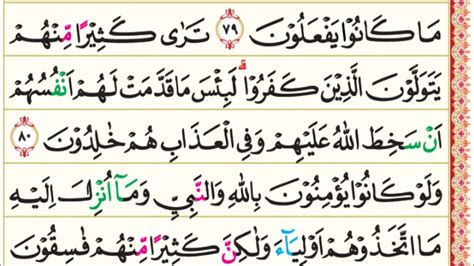 مَا كَانُوْا يَفْعَلُوْنَ ۝٧٩ تَرٰى كَثِيْرًا مِّنْهُمْ
يَتَوَلَّوْنَ الَّذِيْنَ كَفَرُوْا ؕ لَبِئْسَ مَا قَدَّمَتْ لَهُمْ اَنْفُسُهُمْ
اَنْ سَخِطَ اللّٰهُ عَلَيْهِمْ وَفِي الْعَذَابِ هُمْ خٰلِدُوْنَ ۝٨٠
وَلَوْ كَانُوْا يُؤْمِنُوْنَ بِاللّٰهِ وَالنَّبِيِّ وَمَاۤ اُنْزِلَ اِلَيْهِ
مَا اتَّخَذُوْهُمْ اَوْلِيَآءَ وَلٰكِنَّ كَثِيْرًا مِّنْهُمْ فٰسِقُوْنَ